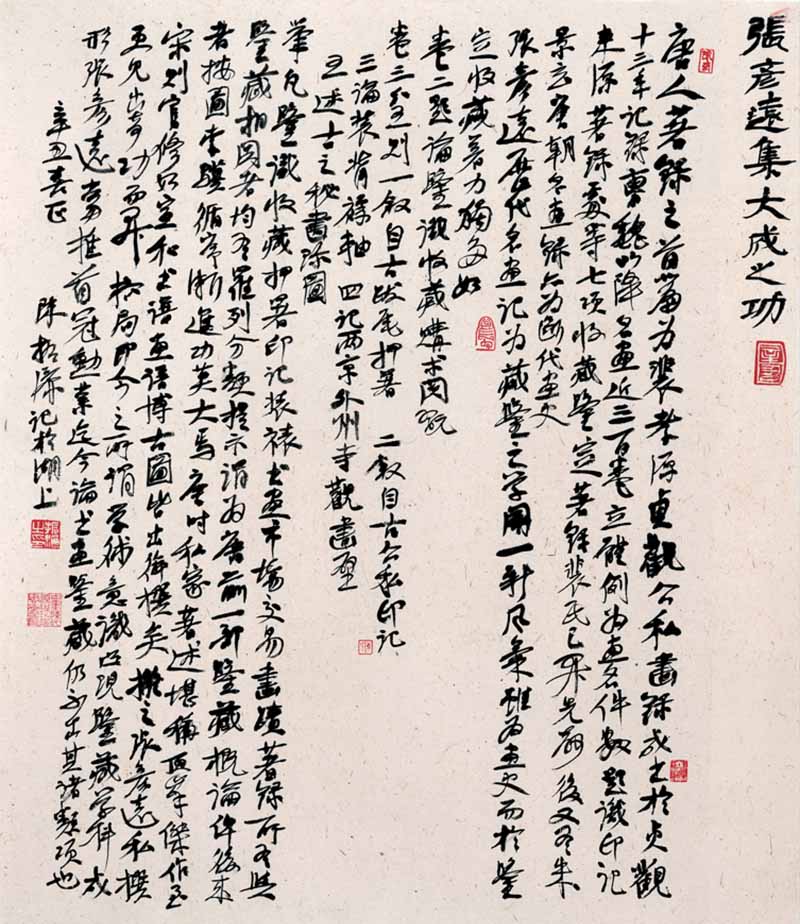 張彥遠集大成之功
唐人著錄之首篇為裴孝源貞觀公私畫錄成書於貞觀
十三年記錄曹魏以降名畫近三百卷立體例為畫名件數題識印記
來源著錄處等七項收藏鑒定著錄裴氏已開先河後又有朱
景玄唐朝名畫錄亦為斷代畫史
張彥遠歷代名畫記為藏鑒之學開一新風氣雖為畫史而於鑒
定收藏著力獨多如
卷二題論鑒識收藏購求閱玩
卷三分五則一敘自古跋尾押署 二敘自古公私印記
三論裝背褾軸 四記兩京外州寺觀畫壁
五述古之秘畫珍圖
舉凡鑒識收藏押署印記裝裱書畫市場交易畫蹟著錄所有與
鑒藏相關者均有羅列分類提示謂為唐前一部鑒藏概論俾後來
者按圖索驥循序漸進功莫大焉唐時私家著述堪稱頂峯傑作至
宋則官修如宣和書譜畫譜博古圖皆出御撰矣 張彥遠私撰
功而 格局即今之所謂學術意識凸現鑒藏學科成
形張彥遠當推首冠勳業迄今論書畫鑒藏仍不出其諸類項也
辛丑春正 陳振濂記於湖上